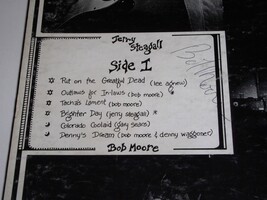 Jerry Steagall
Side I
Put on the Grateful Dead (lee agnew)
Outlaws for In-laws (bob moore)
Tacha's Lament (bob moore)
Brighter Day (jerry steagall) *
Colorado Coolaid (gary sears)
Denny's Disiton (bob moore & denny waggoner)
Bob Moore